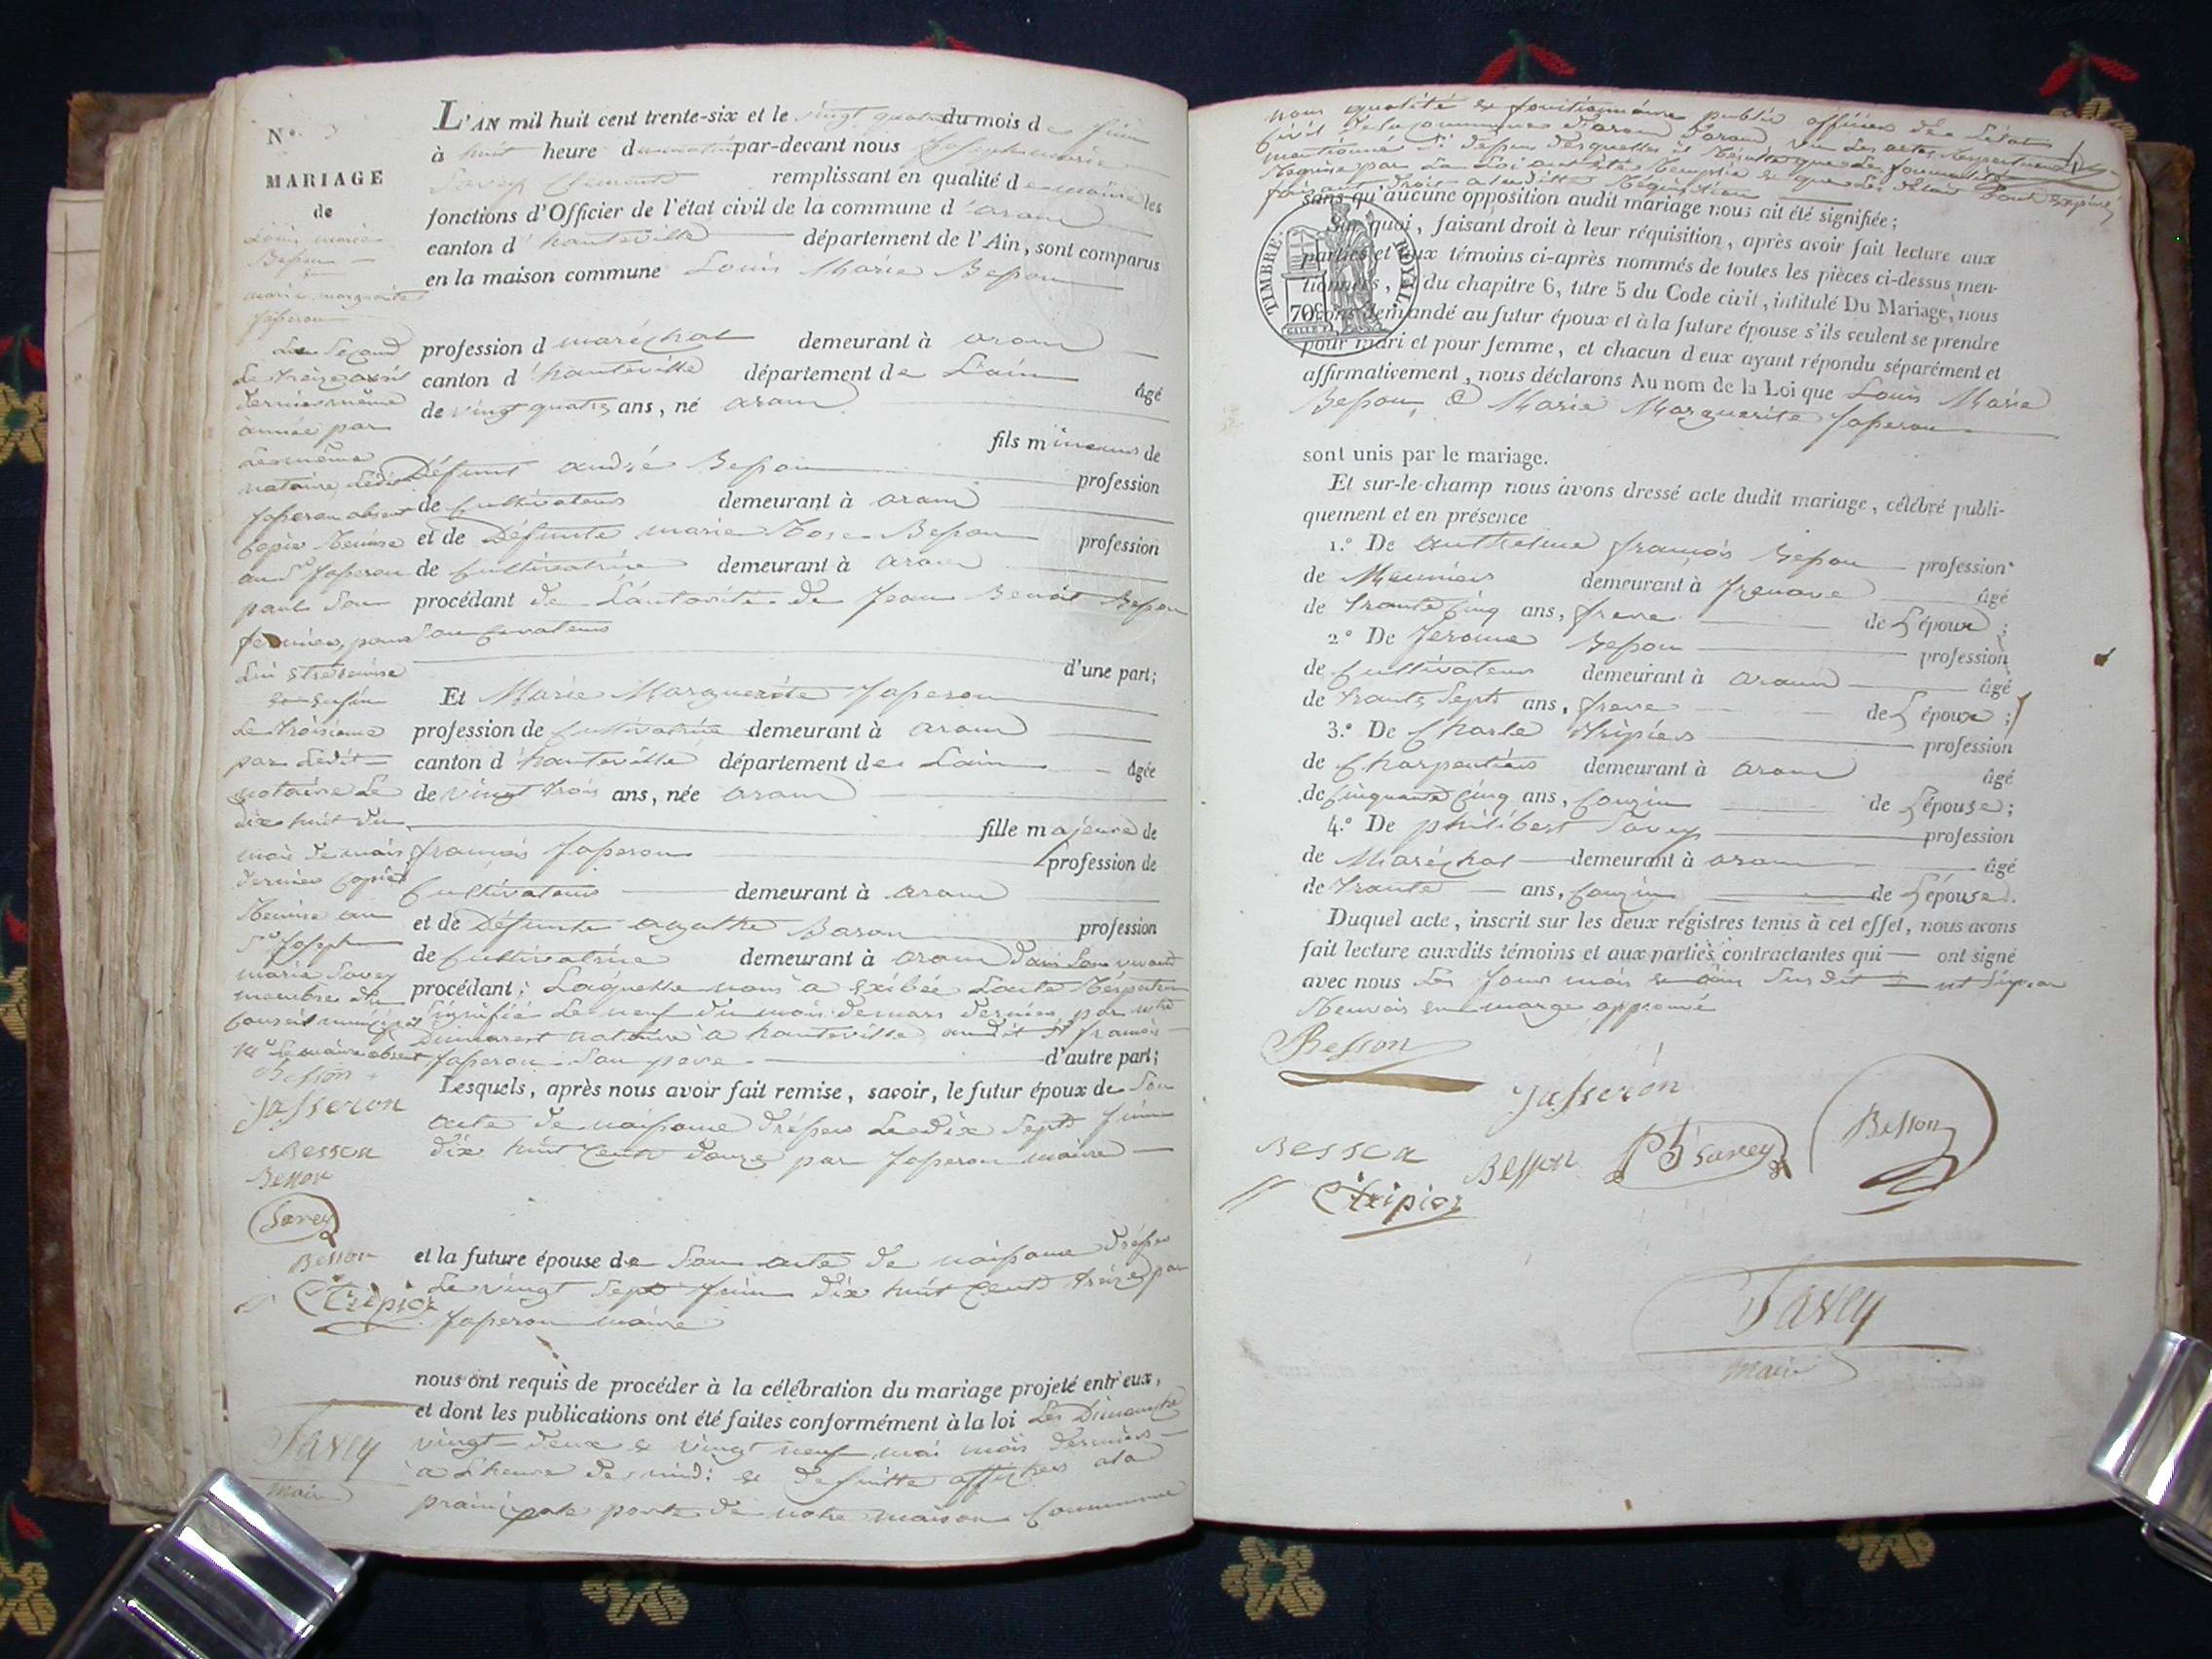 N.º
MARIAGE
de
Louis marie
Besson
&
marie marguerite
Jasseron
Le Second
Le treize avril
dernier même
année par
Le même
notaire, ledit
Jasseron absent
Copie Remise
au Sr Jasseron
paul son
fermier, pour
lui être remise
& Enfin
Le troisième
par Ledit
notaire Le
dix huit du
mois de mais
dernier Copie
Remise au
Sr Joseph
marie Savey
membre du
Conseil municipal
Mr Le maire absent
Besson
Jasseron
Besson
Besson
Savey
Besson
Tripier
Savey
maire
L'AN mil huit cent trente-six et le vingt quatre du mois de Juin
à huit heure du matin par-devant nous Joseph marie
Savey Clement remplissant en qualité de maire les
fonctions d'Officier de l'état civil de la commune d'aran
canton d'hauteville département de l'Ain, sont comparus
en la maison commune Louis Marie Besson
profession d maréchal demeurant à aran
canton d'hauteville département de L'ain âgé
de vingt quatre ans, né aran
fils mineur de
Défunt andré Besson profession
de Cultivateur demeurant à aran
et de Défunte marie Rose Besson profession
de Cultivatrice demeurant à aran
procédant de L'autorité de Jean Benoit Besson
son Curateur
d'une part;
Et Marie Marguerite Jasseron
profession de Cultivatrice demeurant à aran
canton d'hauteville département de Lain âgée
de vingt trois ans, née aran
fille majeure de
françois Jasseron profession de
Cultivateur demeurant à aran
et de Défunte agathe Baron profession
de Cultivatrice demeurant à aran Dans son vivant
procédant; Laquelle nous a exibée Lacte Respectueux
signifié Le neuf du mois demars dernier par mtre
Dumarest notaire à hauteville audit Sr françois
Jasseron son pere d'autre part;
Lesquels, après nous avoir fait remise, savoir, le futur époux de Son
acte de naissance dréssés Le dix Sept Juin
dix huit Cent douze par Jasseron maire
et la future épouse de Son acte de naissance dréssé
Le vingt Sept Juin dix huit Cent treize par
Jasseron maire
nous ont requis de procéder à la célébration du mariage projeté entr'eux,
et dont les publications ont été faites conformément à la loi Les Dimanche
vingt-deux & vingt neuf mai mois dernier
a Lheure de midi & de suitte affichés ala
prainçipale porte de notre maison Commune
nous qualité & fonitionnaire public officier de Létat
Civil de la Commune d'aran vu Les actes Respectueux
mentionné Si dessus desquelles il Résulte que Les formalité
Requise par La Loi ont été Remplie & que Les délais Sont Expiré
faisant droit aladitte Réquisition
sans qu'aucune opposition audit mariage nous ait été signifiée;
Sur quoi, faisant droit à leur réquisition, après avoir fait lecture aux
parties et aux témoins ci-après nommés de toutes les pièces ci-dessus men-
tionnées, et du chapitre 6, titre 5 du Code civil, intitulé Du Mariage, nous
avons demandé au futur époux et à la future épouse s'ils veulent se prendre
pour mari et pour femme, et chacun d'eux ayant répondu séparément et
affirmativement, nous déclarons Au nom de la Loi que Louis Marie
Besson, & Marie Marguerite Jasseron
TIMBRE ROYAL
70 c
sont unis par le mariage.
Et sur-le-champ nous avons dressé acte dudit mariage, célébré publi-
quement et en présence
1.º De anthelme françois Besson profession
de Meunier demeurant à frenave âgé
de trante Cinq ans, frere de L'époux;
2.º De Jerome Besson profession
de Cultivateur demeurant à aran âgé
de trante Sept ans, frere de L'époux;
3.º De Charle tripier profession
de Charpentier demeurant à aran âgé
de Cinquante Cinq ans, Couzin de L'épouse;
4.º De philibert Savey profession
de Maréchal demeurant à aran âgé
de trante ans, Couzin de L'épouse.
Duquel acte, inscrit sur les deux régistres tenus à cet effet, nous avons
fait lecture auxdits témoins et aux parties contractantes qui ont signé
avec nous Les Jour mois & an Susdit
Renvois en marge approuvé
Besson
Jasseron
Besson
Besson
Ph Savey
Besson
Tripier
Savey
maire